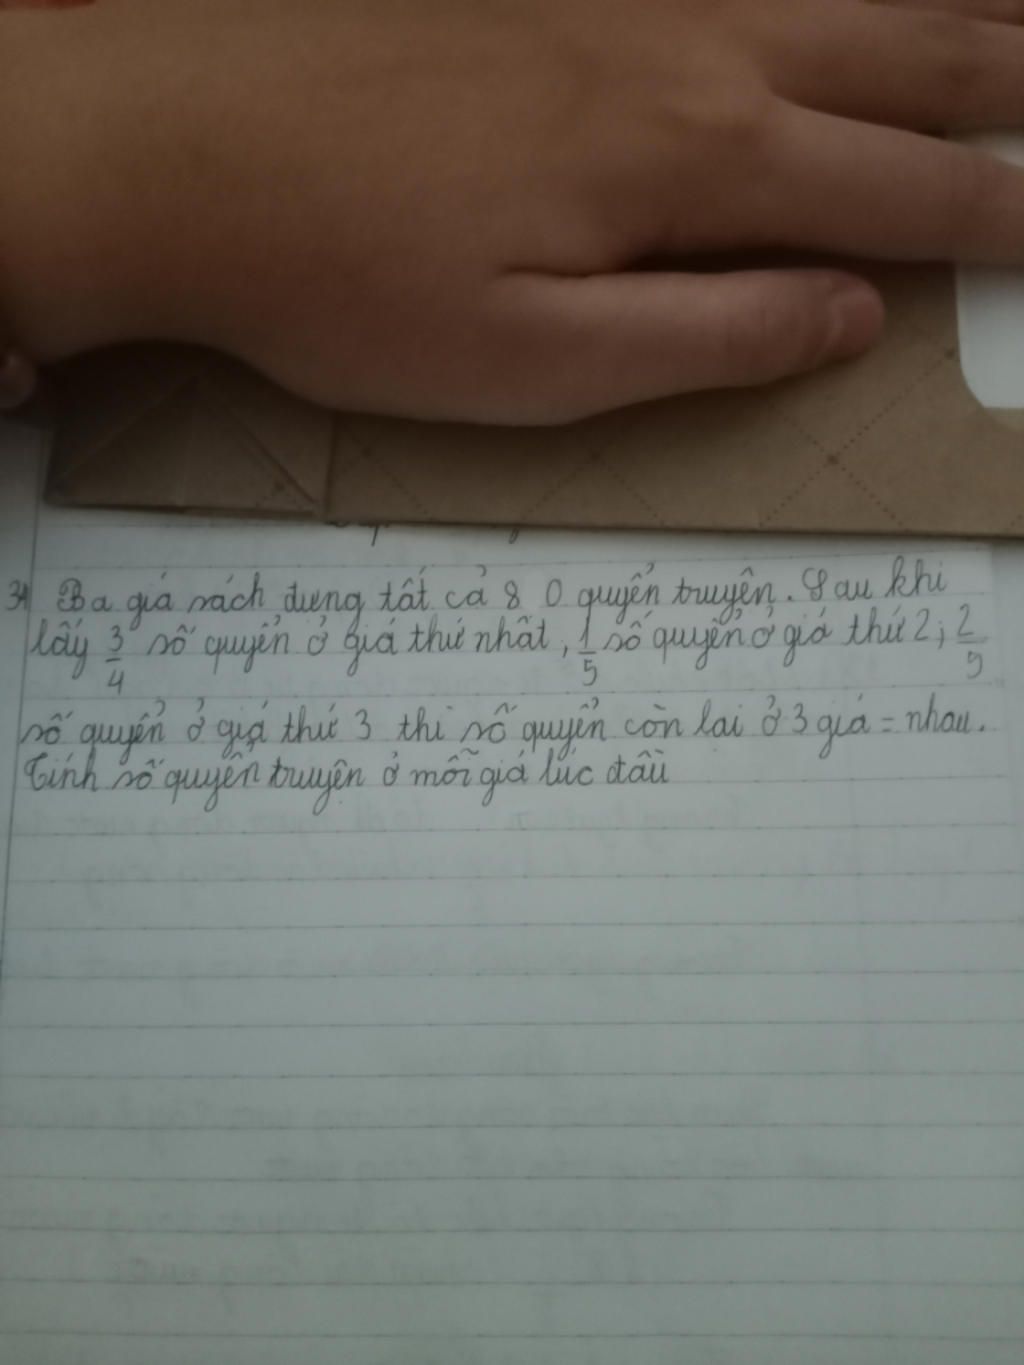 3) Ba giá sách đựng tất cả 80 quyển truyện. Sau khi
lấy 3/4 số quyển ở giá thứ nhất, 1/5 số quyển ở giá thứ 2; 2/5
số quyển ở giá thứ 3 thì số quyển còn lại ở 3 giá = nhau.
Tính số quyển truyện ở mỗi giá lúc đầu